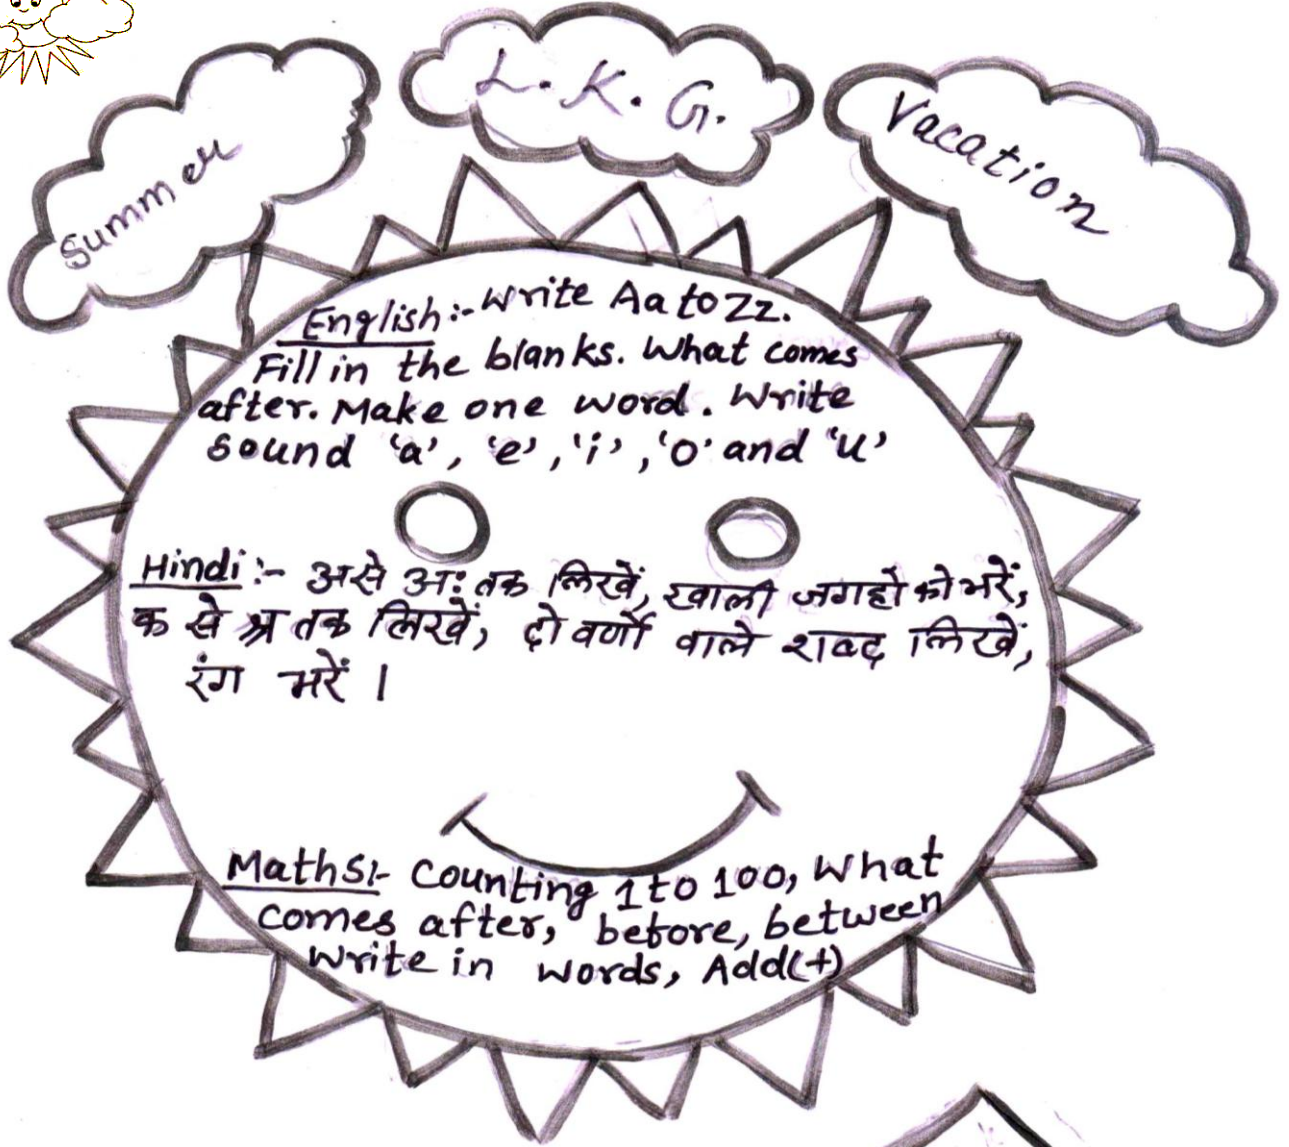 Summer
L.K.G.
Vacation
English:- Write Aa to Zz.
Fill in the blanks. What comes
after. Make one word. Write
sound 'a', 'e', 'i', 'o' and 'u'
Hindi:- अ से अः तक लिखें, खाली जगहों को भरें,
क से श्र तक लिखें, दो वर्णों वाले शब्द लिखें,
रंग भरें ।
Maths:- Counting 1 to 100, What
comes after, before, between
Write in words, Add(+)